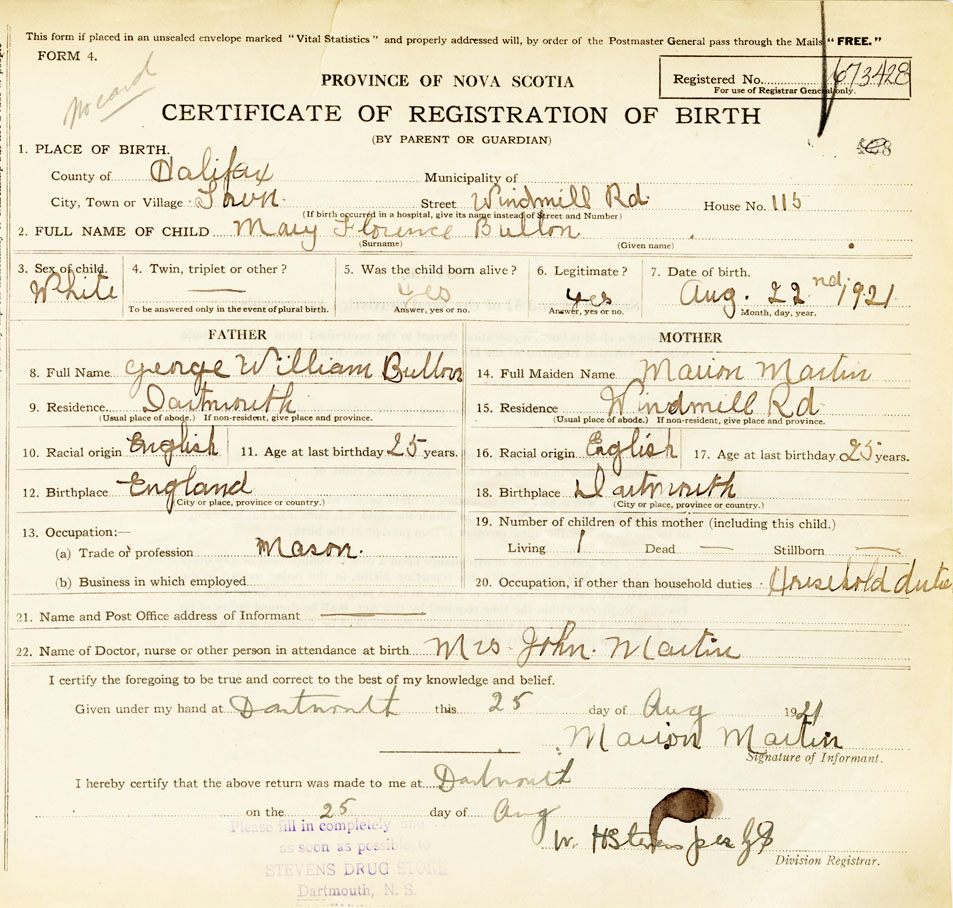 This form if placed in an unsealed envelope marked "Vital Statistics" and properly addressed will, by order of the Postmaster General pass through the Mails "FREE."
FORM 4.
no card
PROVINCE OF NOVA SCOTIA
Registered No. 673428
For use of Registrar General only.
CERTIFICATE OF REGISTRATION OF BIRTH
(BY PARENT OR GUARDIAN)
1. PLACE OF BIRTH.
County of Halifax Municipality of
City, Town or Village Town Street Windmill Rd House No. 115
(If birth occurred in a hospital, give its name instead of Street and Number)
2. FULL NAME OF CHILD Mary Florence Bulton
(Surname) (Given name)
3. Sex of child. White 4. Twin, triplet or other? — 5. Was the child born alive? Yes 6. Legitimate? yes 7. Date of birth. Aug. 22nd, 1921
To be answered only in the event of plural birth. Answer, yes or no. Answer, yes or no. Month, day, year.
FATHER MOTHER
8. Full Name George William Bulton 14. Full Maiden Name Marion Martin
9. Residence Dartmouth 15. Residence Windmill Rd
(Usual place of abode.) If non-resident, give place and province. (Usual place of abode.) If non-resident, give place and province.
10. Racial origin English 11. Age at last birthday 25 years. 16. Racial origin Eglish 17. Age at last birthday 25 years.
12. Birthplace England 18. Birthplace Dartmouth
(City or place, province or country.) (City or place, province or country.)
13. Occupation:— 19. Number of children of this mother (including this child.)
(a) Trade or profession Mason. Living 1 Dead — Stillborn —
(b) Business in which employed 20. Occupation, if other than household duties Household duties
21. Name and Post Office address of Informant —
22. Name of Doctor, nurse or other person in attendance at birth Mrs John. Martin
I certify the foregoing to be true and correct to the best of my knowledge and belief.
Given under my hand at Dartmouth this 25 day of Aug 1921
Marion Martin
Signature of Informant.
I hereby certify that the above return was made to me at Dartmouth
on the 25 day of Aug
Please fill in completely and
as soon as possible to
STEVENS DRUG STORE
Dartmouth, N. S.
W. H Stevens per
Division Registrar.